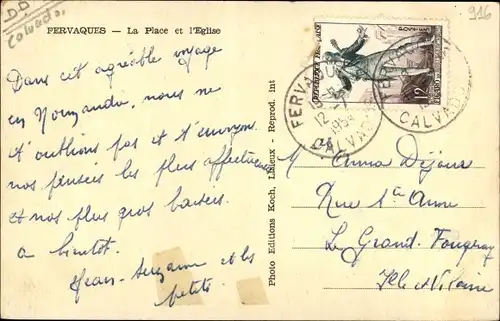 D.D.
Calvados.
FERVAQUES — La Place et l'Eglise
916
REPUBLIQUE FRANÇAISE
POSTES
12
FERVAQUES
12
1954
CALVADOS
FERVAQUES
CALVADOS
Dans cet agréable voyage
en Normandie, nous ne
t'oublions pas et t'envoyons
nos pensées les plus affectueuses
et nos plus gros baisers
a bientôt.
Jean-Suzanne et les
petits.
Photo Editions Koch, Lisieux - Reprod. int
Anna Dejoux
Rue Ste Anne
Le Grand. Fougeray
Ille et Vilaine